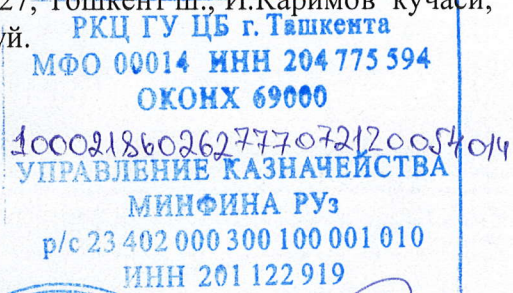 27, Тошкент ш., И.Каримов кучаси,
уй.
РКЦ ГУ ЦБ г. Ташкента
МФО 00014 ИНН 204 775 594
ОКОНХ 69000
100021860262777072120054014
УПРАВЛЕНИЕ КАЗНАЧЕЙСТВА
МИНФИНА РУз
р/с 23 402 000 300 100 001 010
ИНН 201 122 919